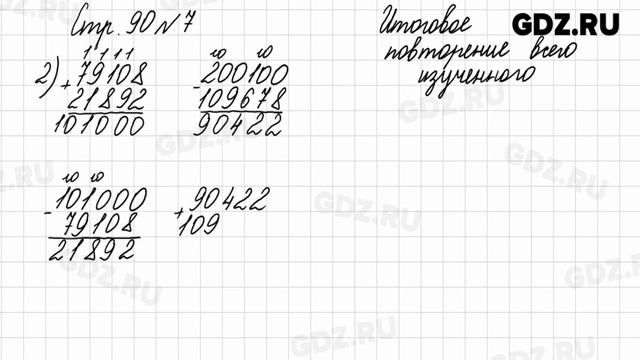 Стр. 90 № 7
Итоговое
повторение всего
изученного
GDZ.RU
1 1 1 1
2) + 79108
21892
101000
10 10
- 200100
109678
90422
10 10
- 101000
79108
21892
+ 90422
109
GDZ.RU
GDZ.RU
GDZ.RU
GDZ.RU
GDZ.RU
GDZ.RU
GDZ.RU